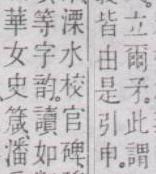 立爾矛。此謂
皆由是引申。
溧水校官碑
等字韵。讀如
華女史箴潘